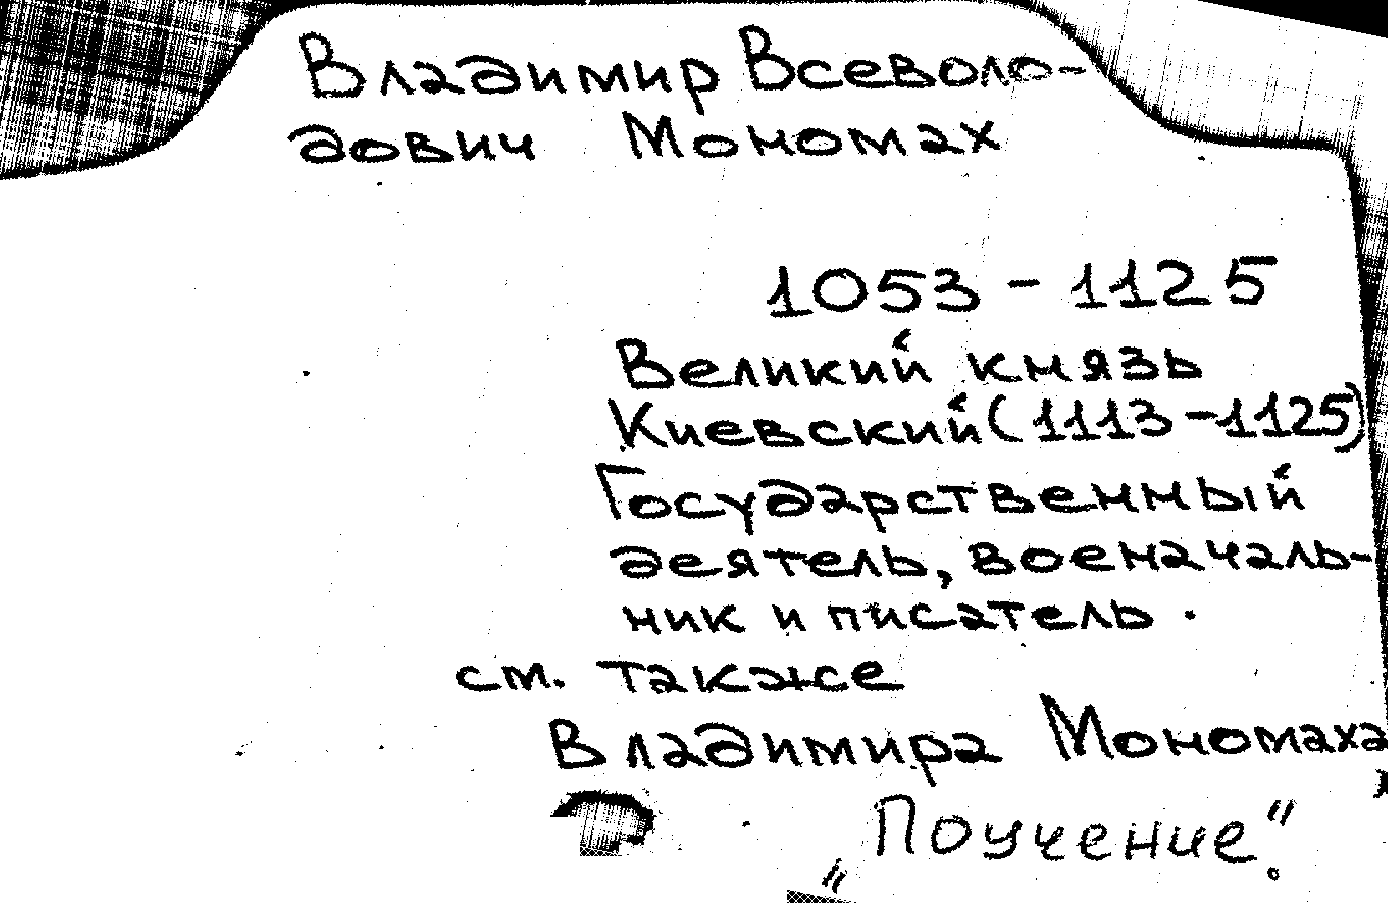 Владимир Всеволо-
дович Мономах
1053 - 1125
Великий князь
Киевский (1113 - 1125)
Государственный
деятель, военачаль-
ник и писатель.
см. также
Владимира Мономаха
„Поучение".